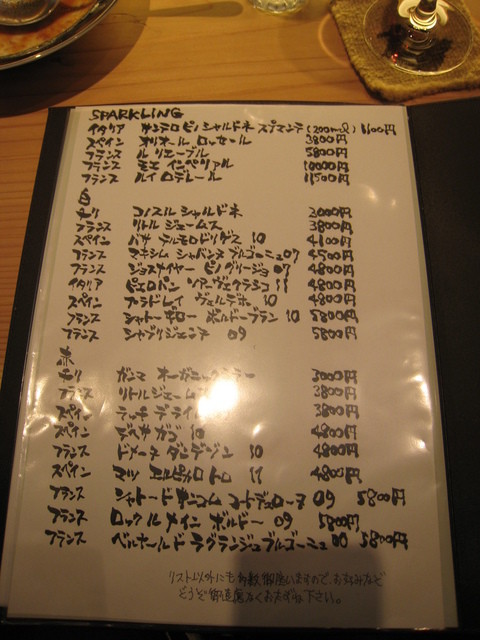 SPARKLING
イタリア サンテロ ピノ シャルドネ スプマンテ (200ml) 1100円
スペイン オリオール ロッセール 3800円
フランス ル 5800円
フランス モエ インペリアル 10000円
フランス ルイ ロデレール 11500円
白
チリ コノスル シャルドネ 3000円
フランス リトル ジェームス 3800円
スペイン パサ テルモロドリゲス 10 4100円
フランス マキシム シャバンヌ ブルゴーニュ 07 4500円
フランス ジョスメイヤー ピノグリージョ 07 4800円
イタリア ピエロパン ソアーヴェクラシコ 11 4800円
スペイン プラドレイ ヴェルデホ 10 4800円
フランス シャトー ギロー ボルドーブラン 10 5800円
フランス シャブリジェンヌ 09 5800円
赤
チリ オーガニック 3000円
フランス リトルジェーム 3800円
スペイン 3800円
スペイン デベサ ガゴ 10 4800円
フランス ドメーヌ ダンデゾン 10 4800円
スペイン マツ エルピカロ トロ 11 4800円
フランス シャトー コートデュローヌ 09 5800円
フランス ロック ルメイン ボルドー 09 5800円
フランス ベルナールド ラグランジュ ブルゴーニュ 5800円
リスト以外にも多数御座いますので、お好みなど
どうぞ御遠慮なくおたずね下さい。